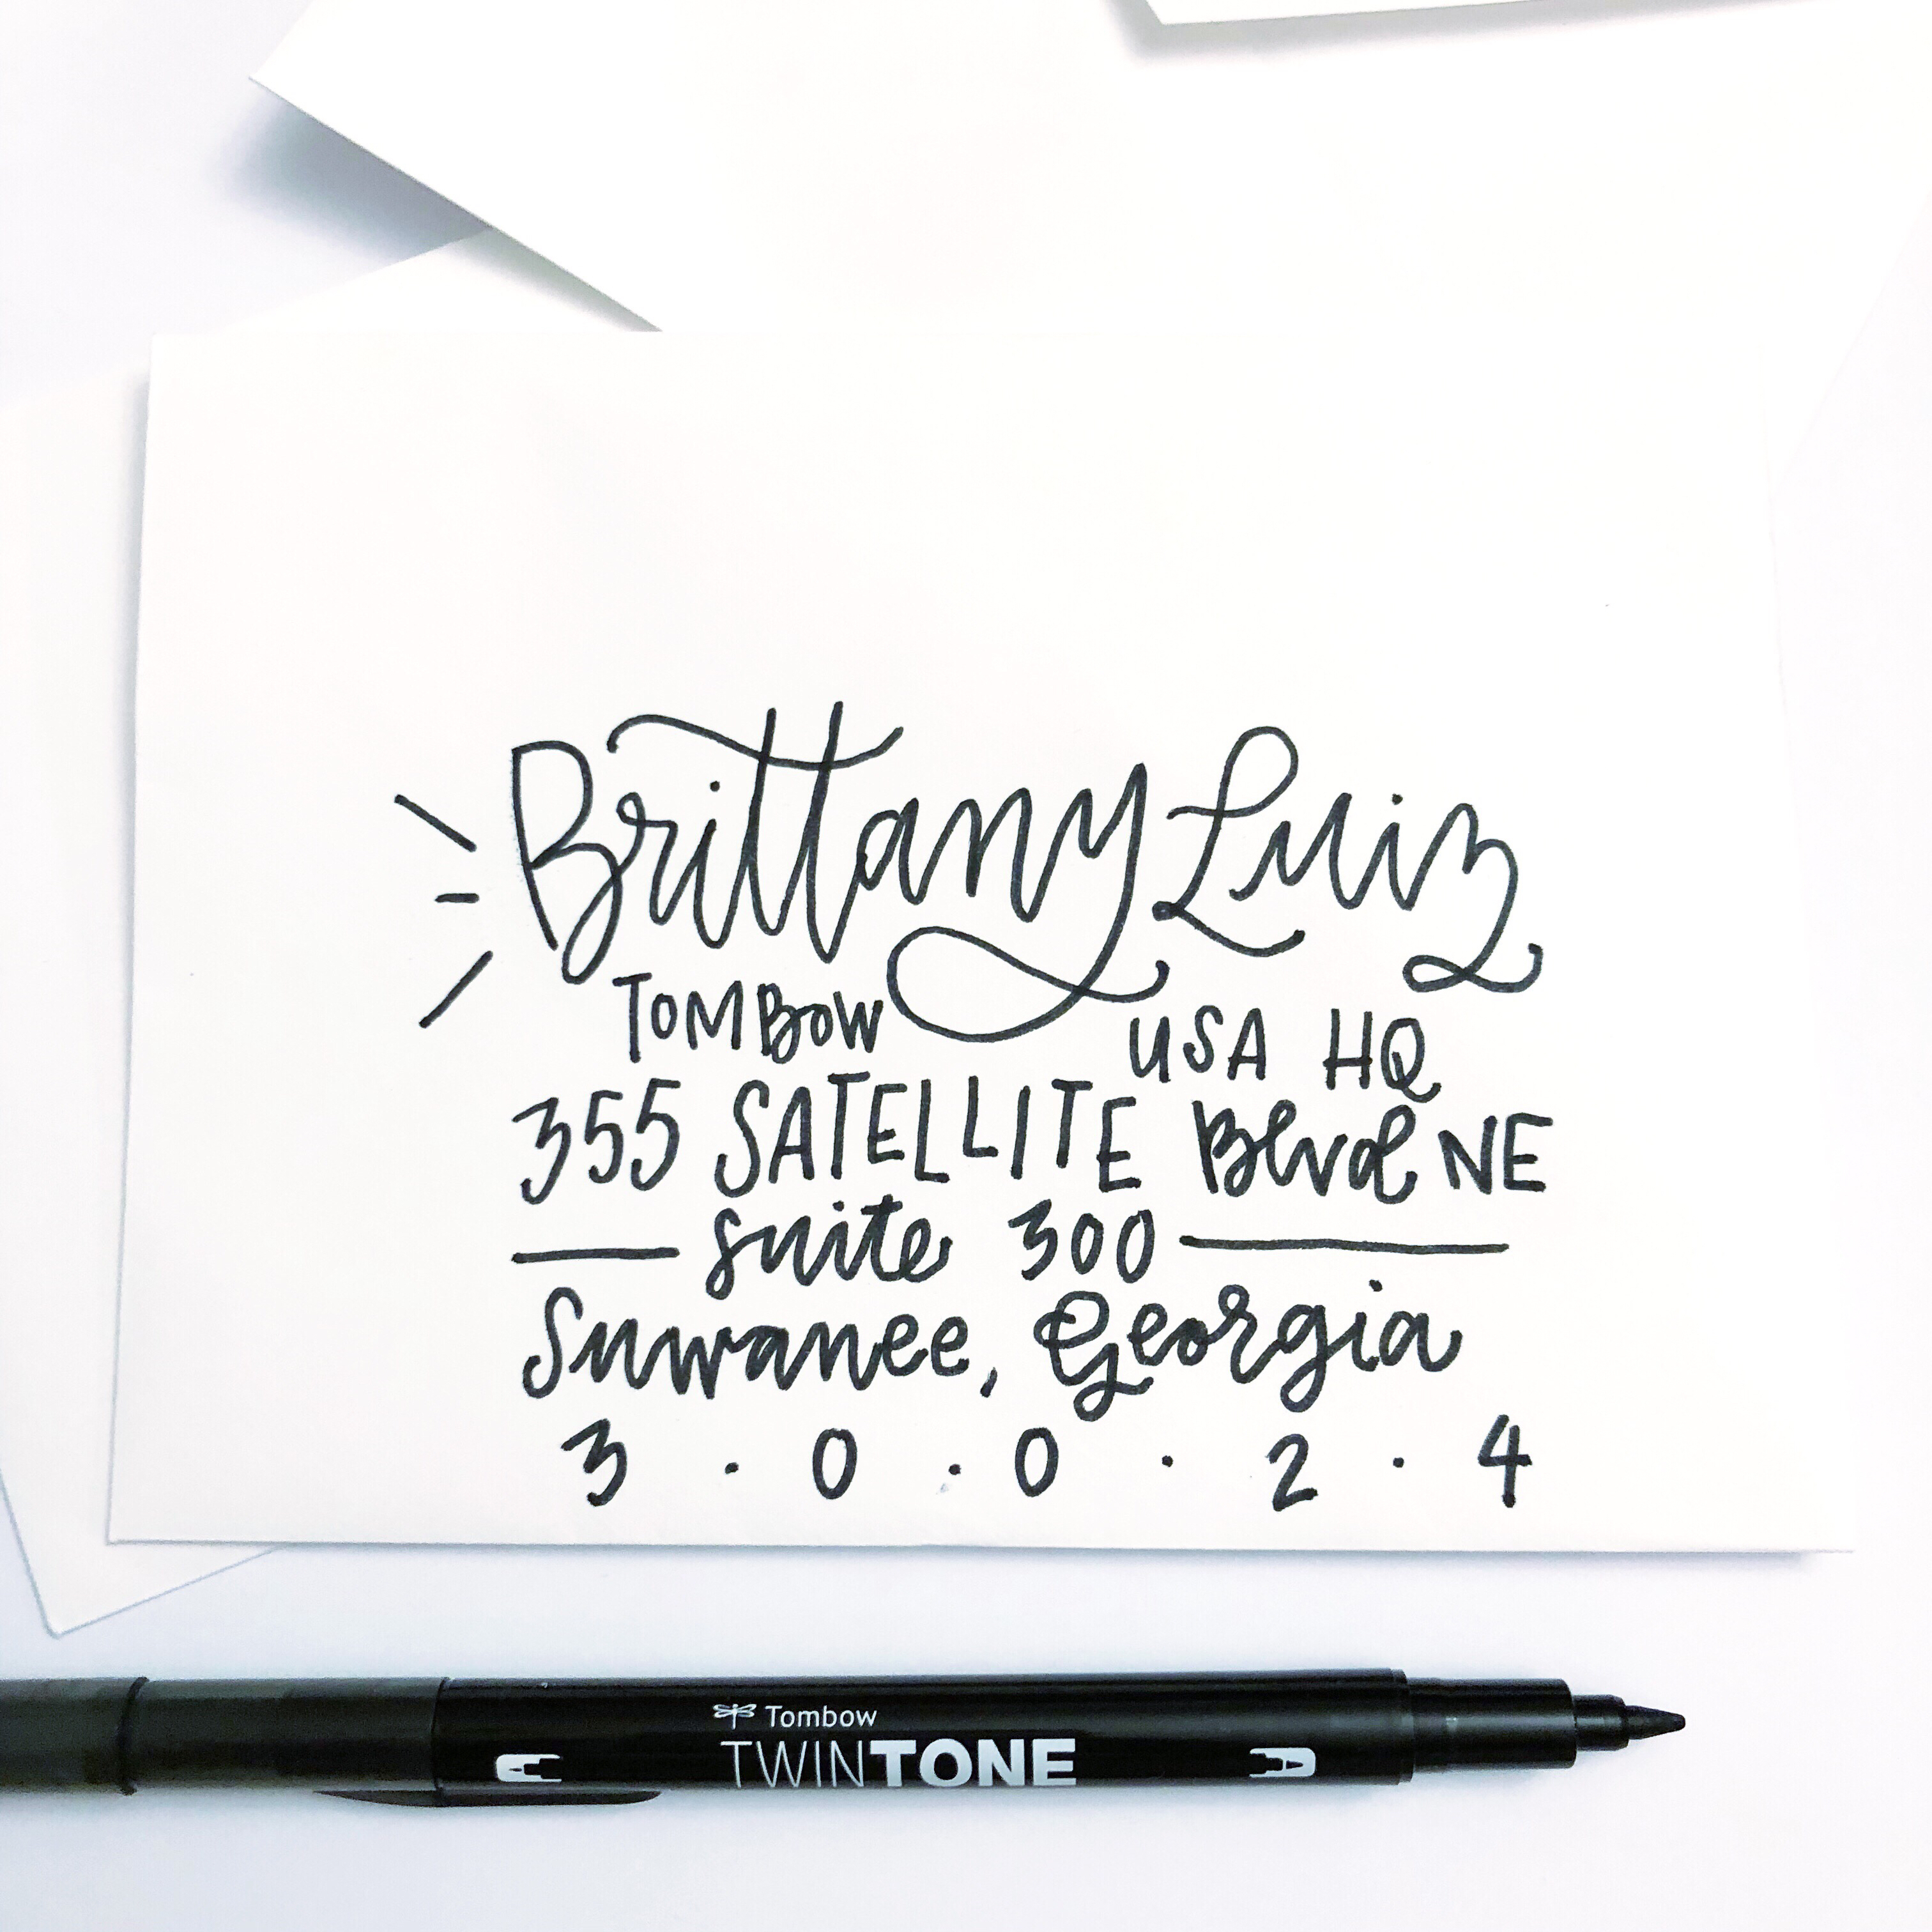 Brittany Luiz
TOMBOW USA HQ
355 SATELLITE Blvd NE
suite 300
Suwanee, Georgia
3 . 0 . 0 . 2 . 4
Tombow
TWINTONE